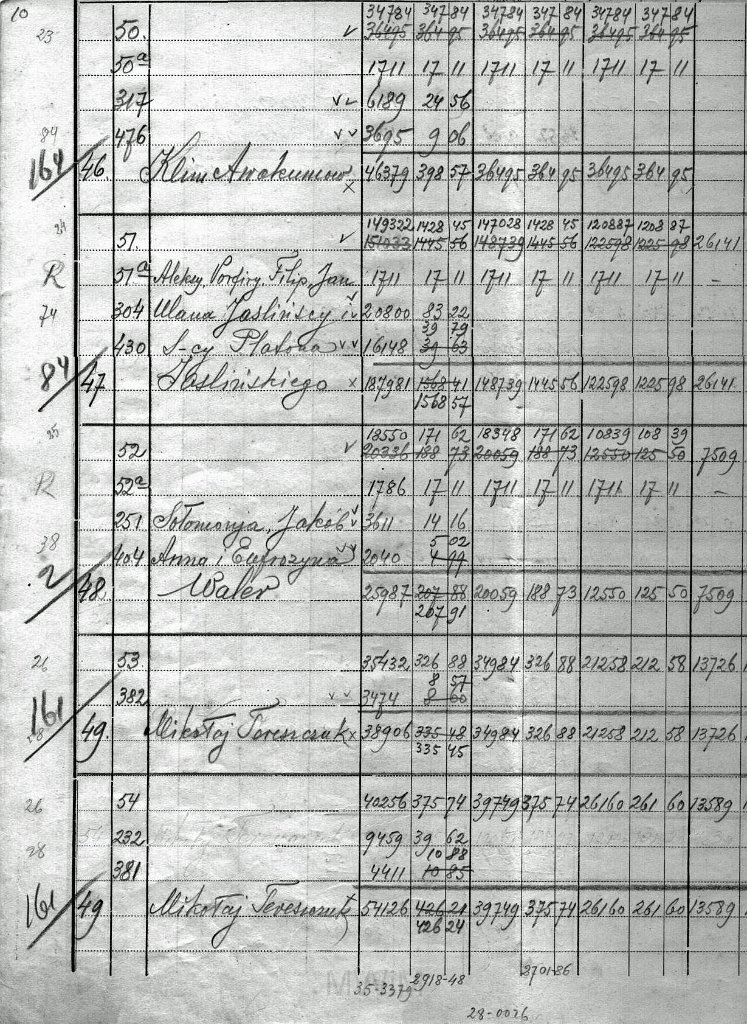 10 34784 347 84 34784 347 84 34784 347 84
23 50. v 36495 364 95 36495 364 95 36495 364 95
50a 1711 17 11 1711 17 11 1711 17 11
317 v v 6189 24 56
84 476 v v 3695 9 06
164 46. Klim Awakumow x 46379 398 57 36495 364 95 36495 364 95
149322 1428 45 147028 1428 45 120887 1208 87
51. v 151033 1445 56 148739 1445 56 122598 1225 98 26141
R 51a Aleksy, Porfiry, Filip, Jan 1711 17 11 1711 17 11 1711 17 11 -
74 304 Ulana Jaslińscy i v 20800 83 22
39 79
430 S-cy Platona v v 16148 39 63
84 47 Jaslińskiego x 187981 1568 41 148739 1445 56 122598 1225 98 26141
1568 57
85 18550 171 62 18348 171 62 10839 108 39
52 v 20336 188 73 20059 188 73 12550 125 50 7509
R 52a 1786 17 11 1711 17 11 1711 17 11 -
251 Sołomonja, Jakób v 3611 14 16
38 5 02
404 Anna i Eufrozyna v v 2040 4 99
2 48. Waler 25987 207 88 20059 188 73 12550 125 50 7509
207 91
26 53 35432 326 88 34984 326 88 21258 212 58 13726
8 57
382 v v 3474 8 60
161 49. Mikołaj Tereszczuk x 38906 335 48 34984 326 88 21258 212 58 13726
335 45
26 54 40256 375 74 39749 375 74 26160 261 60 13589
232 9459 39 62
28 10 88
381 4411 10 85
161 49 Mikołaj Tereszczuk 54126 426 21 39749 375 74 26160 261 60 13589
426 24
35-3379 2918-48 2701-86
28-0026